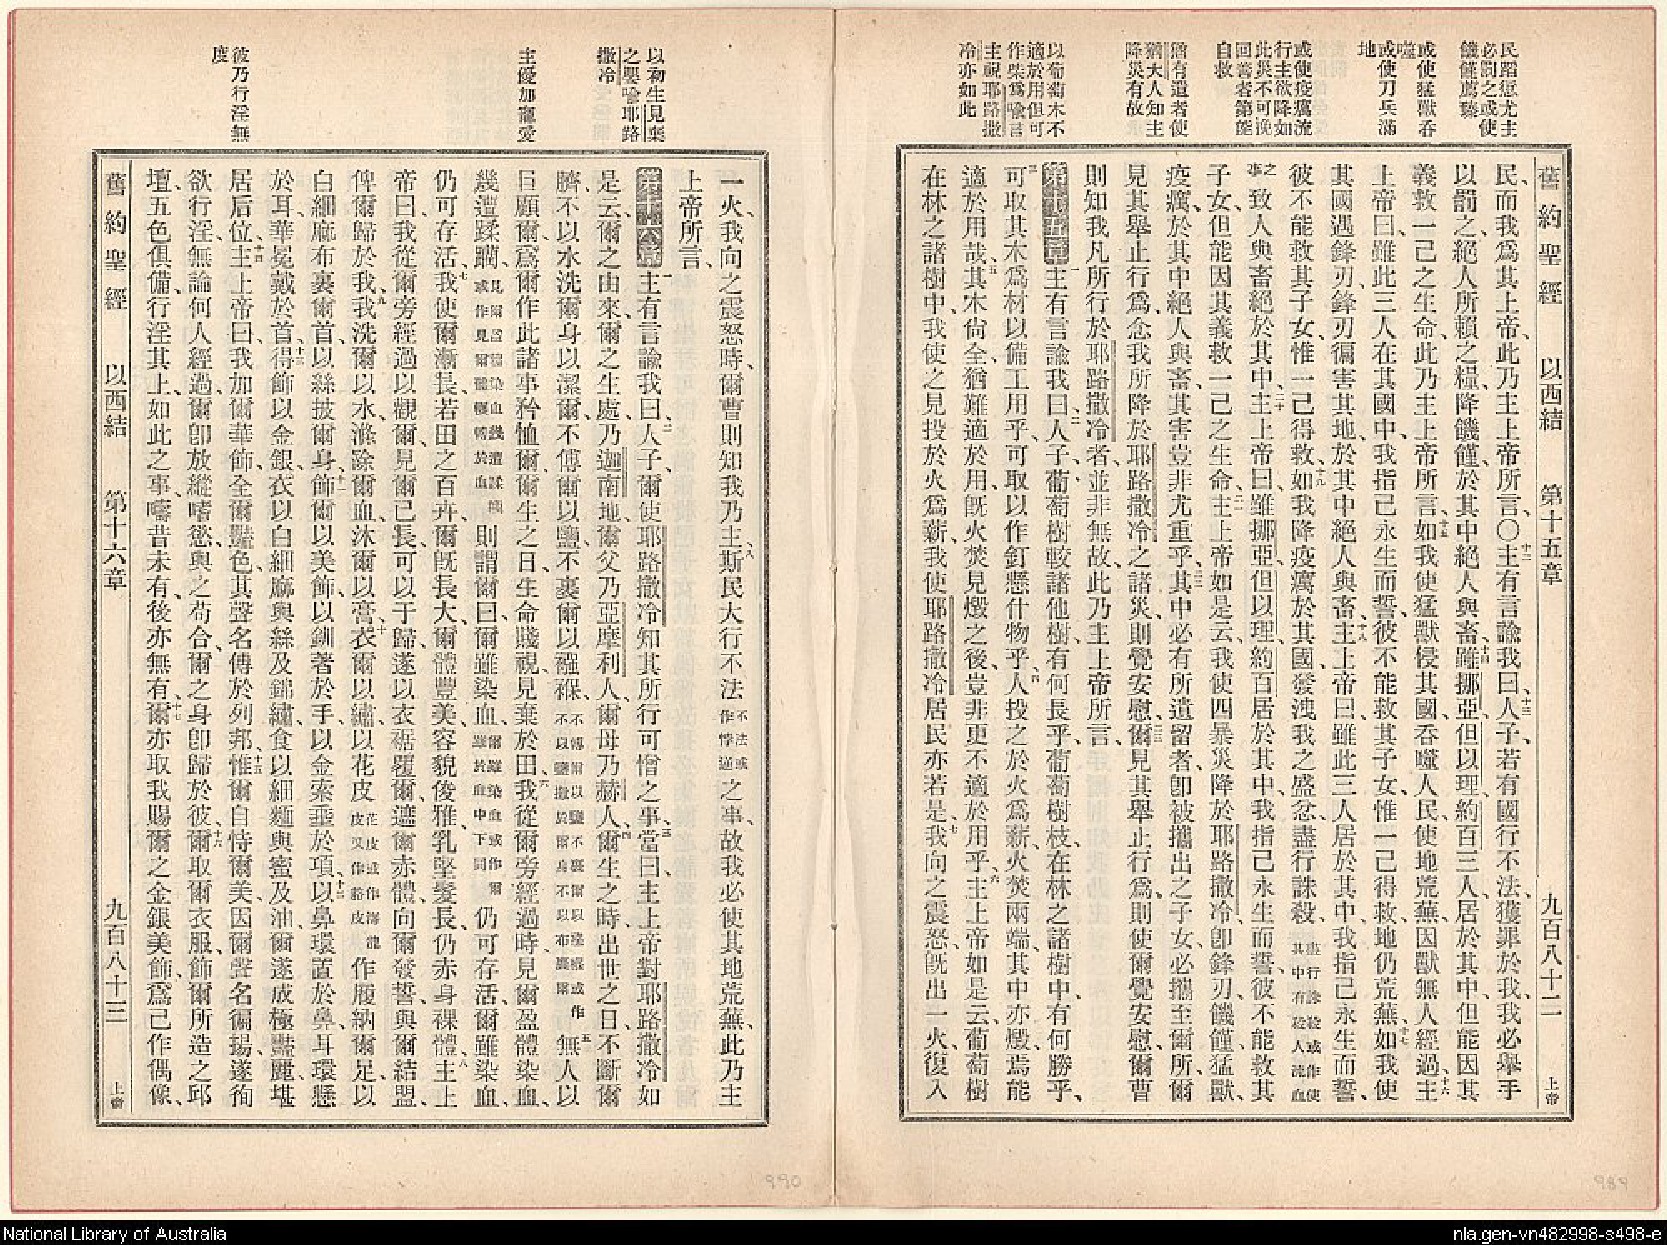 民蹈愆尤主
必罰之或使
饑饉薦臻
或使猛獸吞
噬
或使刀兵滿
地
或使疫癘流
行主欲降如
此災不可挽
回善者第能
自救
猶有遺者使
猶大人知主
降災有故
以葡萄木不
適於用但可
作柴爲喻言
主視耶路撒
冷亦如此
舊約聖經 以西結 第十五章 九百八十二 上帝
民而我爲其上帝、此乃主上帝所言、○十二主有言諭我曰、十三人子、若有國行不法、獲罪於我、我必舉手
以罰之、絕人所賴之糧、降饑饉於其中、絕人與畜、十四雖挪亞但以理約百三人居於其中、但能因其
義救一己之生命、此乃主上帝所言、十五如我使猛獸侵其國、吞噬人民、使地荒蕪、因獸無人經過、十六主
上帝曰、雖此三人在其國中、我指己永生而誓、彼不能救其子女、惟一己得救、地仍荒蕪、十七如我使
其國遇鋒刃、鋒刃徧害其地、於其中絕人與畜、十八主上帝曰、雖此三人居於其中、我指己永生而誓、
彼不能救其子女、惟一己得救、十九如我降疫癘於其國、發洩我之盛忿、盡行誅殺、盡行誅殺或作使其中有殺人流血
之事致人與畜絕於其中、二十主上帝曰、雖挪亞但以理約百居於其中、我指己永生而誓、彼不能救其
子女、但能因其義救一己之生命、二一主上帝如是云、我使四暴災降於耶路撒冷、卽鋒刃、饑饉、猛獸、
疫癘、於其中絕人與畜、其害豈非尤重乎、二二其中必有所遺留者、卽被攜出之子女、必攜至爾所、爾
見其舉止行爲、念我所降於耶路撒冷之諸災、則覺安慰、二三爾見其舉止行爲、則使爾覺安慰、爾曹
則知我凡所行於耶路撒冷者、並非無故、此乃主上帝所言、
第十五章一主有言諭我曰、二人子、葡萄樹較諸他樹、有何長乎、葡萄樹枝、在林之諸樹中、有何勝乎、
三可取其木爲材、以備工用乎、可取以作釘、懸什物乎、四人投之於火爲薪、火焚兩端、其中亦燬、焉能
適於用哉、五其木尙全、猶難適於用、旣火焚見燬之後、豈非更不適於用乎、六主上帝如是云、葡萄樹
在林之諸樹中、我使之見投於火爲薪、我使耶路撒冷居民亦若是、七我向之震怒、旣出一火、復入
以初生見棄
之嬰喻耶路
撒冷
主優加寵愛
彼乃行淫無
度
一火、我向之震怒時、爾曹則知我乃主、八斯民大行不法、不法或作悖逆之事、故我必使其地荒蕪、此乃主
上帝所言、
第十六章一主有言諭我曰、二人子、爾使耶路撒冷知其所行可憎之事、三當曰、主上帝對耶路撒冷如
是云、爾之由來、爾之生處、乃迦南地、爾父乃亞摩利人、爾母乃赫人、四爾生之時、出世之日、不斷爾
臍、不以水洗爾身以潔爾、不傅爾以鹽、不裹爾以襁褓、五無人以
目顧爾、爲爾作此諸事、矜恤爾、爾生之日、生命賤視、見棄於田、六我從爾旁經過時、見爾盈體染血、
幾遭蹂躪、則謂爾曰、爾雖染血、仍可存活、爾雖染血、
仍可存活、七我使爾漸長、若田之百卉、爾旣長大、爾體豐美、容貌俊雅、乳堅髮長、仍赤身裸體、八主上
帝曰、我從爾旁經過、以觀爾、見爾已長、可以于歸、遂以衣裾覆爾、遮爾赤體、向爾發誓、與爾結盟、
俾爾歸於我、九我洗爾以水、滌除爾血、沐爾以膏、十衣爾以繡、以花皮作履納爾足、以
白細麻布裹爾首、以絲披爾身、十一飾爾以美飾、以釧著於手、以金索垂於項、十二以鼻環置於鼻、耳環懸
於耳、華冕戴於首、十三得飾以金銀、衣以白細麻與絲及錦繡、食以細麵與蜜及油、爾遂成極豔麗、堪
居后位、十四主上帝曰、我加爾華飾、全爾豔色、其聲名傳於列邦、十五惟爾自恃爾美、因爾聲名徧揚、遂徇
欲行淫、無論何人經過、爾卽放縱嗜慾、與之苟合、爾之身卽歸於彼、十六爾取爾衣服、飾爾所造之邱
壇、五色俱備、行淫其上、如此之事、疇昔未有、後亦無有、十七爾亦取我賜爾之金銀美飾、爲己作偶像、
舊約聖經 以西結 第十六章 九百八十三 上帝
990
989
National Library of Australia
nla.gen-vn482998-s498-e